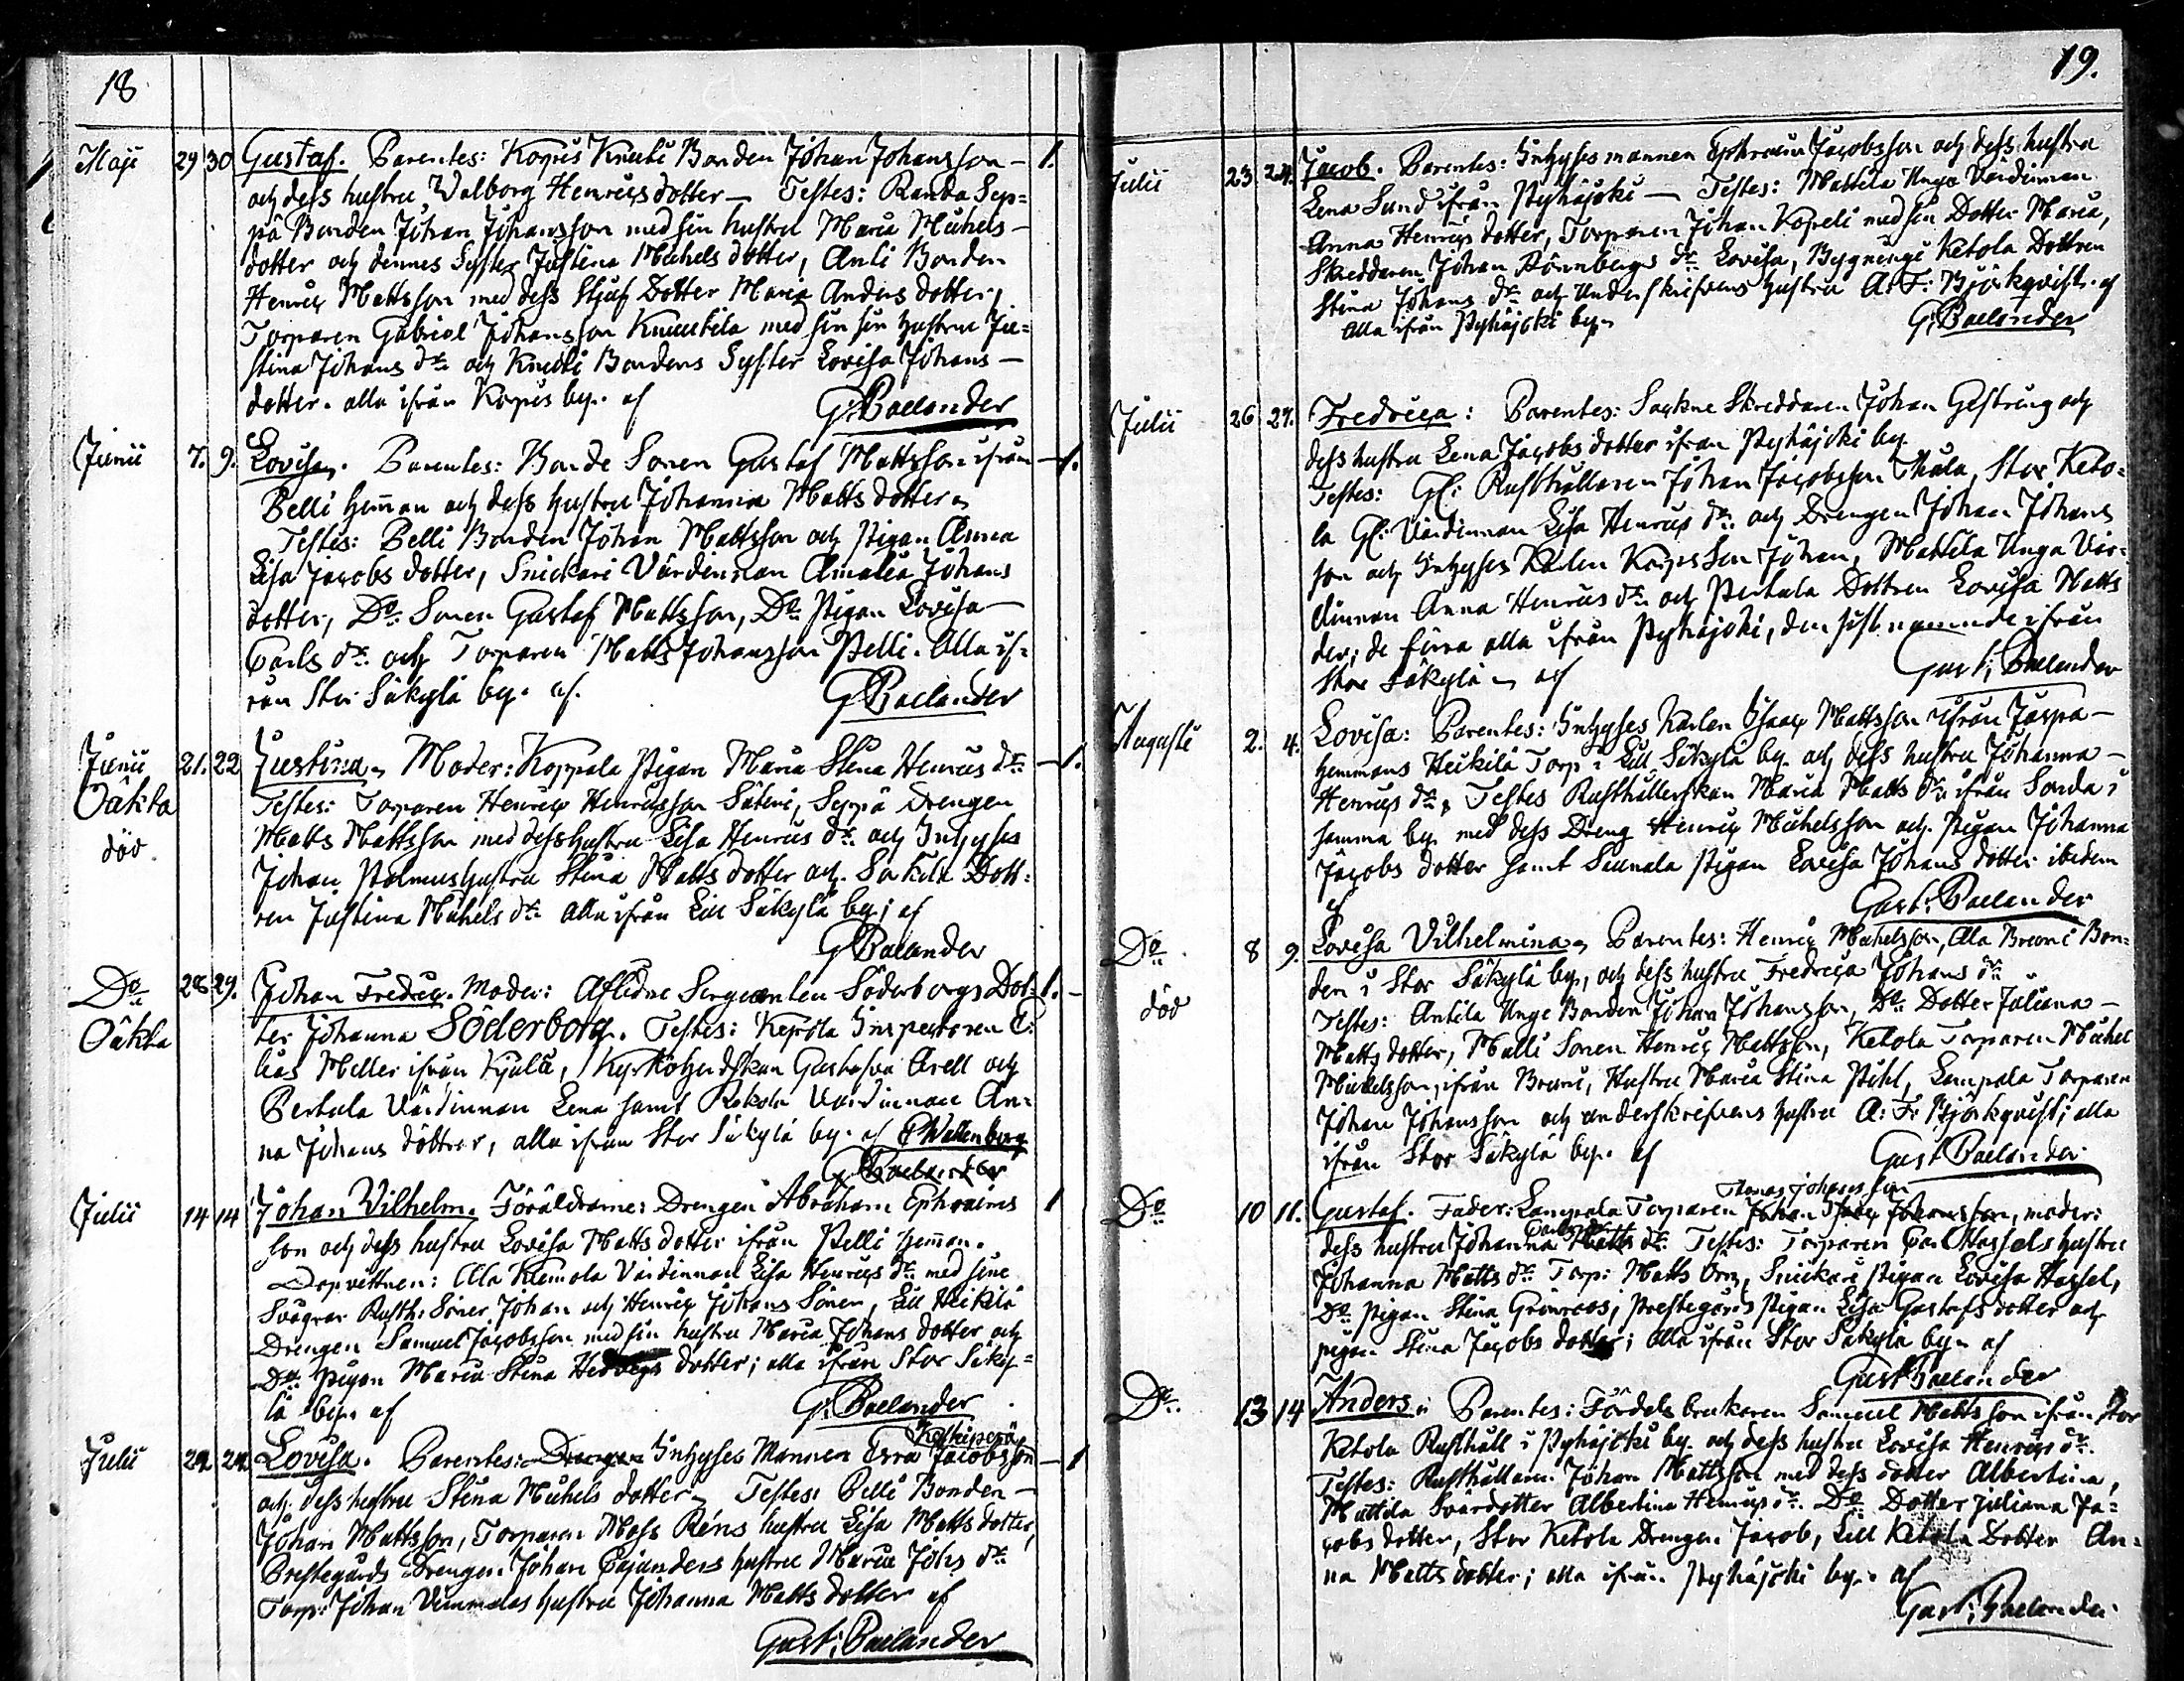 18
Maji 29 30 Gustaf. Parentes: Korpis Knuti Bonden Johan Johansson – 1.
och dess hustru Walborg Henricsdotter – Testes: Ranta Sep=
pä Bonden Johan Johansson med sin hustru Maria Michels –
dotter och dennes Syster Justina Michels dotter, Anti Bonden
Henric Mattsson med dess Stjuf Dotter Maria Anders dotter,
Torparen Gabriel Johansson Knuutila med sin sin hustru Ju=
stina Johans dr och Knuti Bondens Syster Lovisa Johans –
dotter. alla ifrån Korpis by. af
G: Paelander
Junii 7. 9. Lovisa. Parentes: Bonde Sonen Gustaf Mattsson ifrån – 1.
Pelli Hemman och dess hustru Johanna Matts dotter
Testes: Pelli Bonden Johan Mattsson och Pigan Anna
Lisa Jacobs dotter, Snickari Värdinnan Amalia Johans
dotter, Do Sonen Gustaf Mattsson, Do Pigan Lovisa –
Carls dr och Torparen Matts Johansson Pelli. Alla if=
rån Stor Säkylä by. af.
G Paelander
Junii 21. 22 Justina. Moder: Koppala Pigan Maria Stina Henrics dr – 1.
Oäkta Testes: Torparen Henric Henricsson Säteri, Seppä Drengen
död Matts Mattsson med dess hustru Lisa Henrics dr och Inhyses
Johan hustru Stina Matts dotter och Dott=
ren Justina Michels dr alla ifrån Lill Säkylä by; af
G Paelander
Do 28 29. Johan Fredric. Moder: Aflidne Sergeanten Söderborgs Dot= 1. –
Oäkta ter Johanna Söderborg. Testes: Kepola Inspectoren E:
lias Meller ifrån Kjula, Gustafva Arell och
Pertula Värdinnan Lena samt Rekola Värdinnan An=
na Johans döttrar, alla ifrån Stor Säkylä by. af P Wallenborg
G: Paelander
Julii 14 14 Johan Vilhelm. Föräldrarne: Drengen Abraham Ephraims 1
son och dess hustru Lovisa Matts dotter ifrån Pelli Hemman.
Dopvittnen: Ala Klemola Värdinnan Lisa Henrics dr med sine
Svågrar Rusth: Söner Johan och Henric Johans Söner, Lill Heikilä
Drengen Samuel Jacobsson med sin hustru Maria Johans dotter och
Do Pigan Maria Stina dotter; alla ifrån Stor Säky=
lä by. af
G: Paelander
Koskiperä
Julii 22. 24. Lovisa. Parentes: Drengen Inhyses Mannen Erra Jacobsson – 1
och dess hustru Stina Michels dotter Testes: Pelli Bonden –
Johan Mattsson, Torparen Mats Réns hustru Lisa Matts dotter,
Prestegårds Drengen Johan Cajanders hustru Maria Johs dr
Torp: Johan Vimmalas hustru Johanna Matts dotter af
Gust: Paelander
19.
Julii 23 24. Jacob. Parentes: Inhyses mannen Ephraim Jacobsson och dess hustru
Lena Sund ifrån Pyhäjoki – Testes: Mattila Unga Värdinnan
Anna Henrics dotter, Torparen Johan Kopeli med sin Dotter Maria,
Skreddaren Johan Rönnbergs dr Lovisa, Ketola Dottren
Stina Johans dr och underskrifvens hustru A: F: Björkqvist. af
alla ifrån Pyhäjoki by
G: Paelander
Julii 26 27. Fredrica: Parentes: Sockne Skreddaren Johan Gestring och
dess hustru Lena Jacobs dotter ifrån Pyhäjoki by.
Testes: Gl: Rusthållaren Johan Jacobsson Thula, Stor Keto=
la Gl: Värdinnan Lisa Henrics dr och Drengen Johan Johans
son och Inhyses Karlen Johan, Mattila Unga Vär=
dinnan Anna Henrics dr och Pertula Dottren Lovisa Matts
der; de förra alla ifrån Pyhäjoki, den sist namnde ifrån
Stor Säkylä af
Gust; Paelander
Augusti 2. 4. Lovisa: Parentes: Inhyses Karlen Isaac Mattsson ifrån Jaspa –
hemmans Heikilä Torp i Lill Säkylä by. och dess hustru Johanna –
Henrics dr, Testes Rusthållerskan Maria Matts dr ifrån Sonda i
samma by med dess Dreng Henric Michelsson och Pigan Johanna
Jacobs dotter samt Pigan Lovisa Johans dotter ibidem
af
Gust: Paelander
Do 8 9. Lovisa Vilhelmina Parentes: Henric Michelsson, Ala Bon=
död den i Stor Säkylä by, och dess hustru Fredrica Johans dr
Testes: Antila Unge Bonden Johan Johansson, Do Dotter Juliana –
Matts dotter, Malli Sonen Henric Mattsson, Ketola Torparen Michel
Michelsson, ifrån Hustru Maria Stina Pihl, Lempala Torparen
Johan Johansson och underskrifvens hustru A: F: Björkqvist; alla
ifrån Stor Säkylä by. af
Gust Paelander
Thomas Johansson
Do 10 11. Gustaf. Fader: Lampala Torparen Johan Isac Johansson, moder:
Carls dr
dess hustru Johanna Matts dr Testes: Torparen Carl Hassels hustru
Johanna Matts dr Torp: Matts Orn, Snickari Pigan Lovisa Hassel,
Do Pigan Stina Grönroos; Prestegårds Pigan Lisa Gustafs dotter och
pigan Stina Jacobs dotter; alla ifrån Stor Säkylä by af
Gust Paelander
Do 13 14 Anders. Parentes: Fördels brukaren Samuel Mattsson ifrån Stor
Ketola Rusthåll i Pyhäjoki by. och dess hustru Lovisa Henrics dr.
Testes: Rusthållaren Johan Mattsson med dess dotter Albertina,
Mattila Svärdotter Albertina Henrics dr. Do Dotter Juliana Ja=
cobs dotter, Stor Ketola Drengen Jacob, Lill Ketola Dotter An=
na Matts dotter; alla ifrån Pyhäjoki by. af
Gust; Paelander